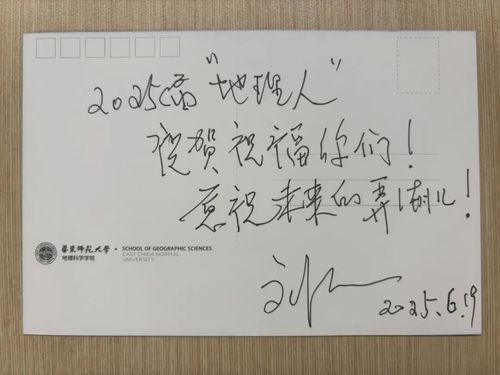 2025届“地理人”
祝贺祝福你们！
祝未来的弄潮儿！
華東師範大學 · SCHOOL OF GEOGRAPHIC SCIENCES
地理科学学院 EAST CHINA NORMAL UNIVERSITY
2025.6.19